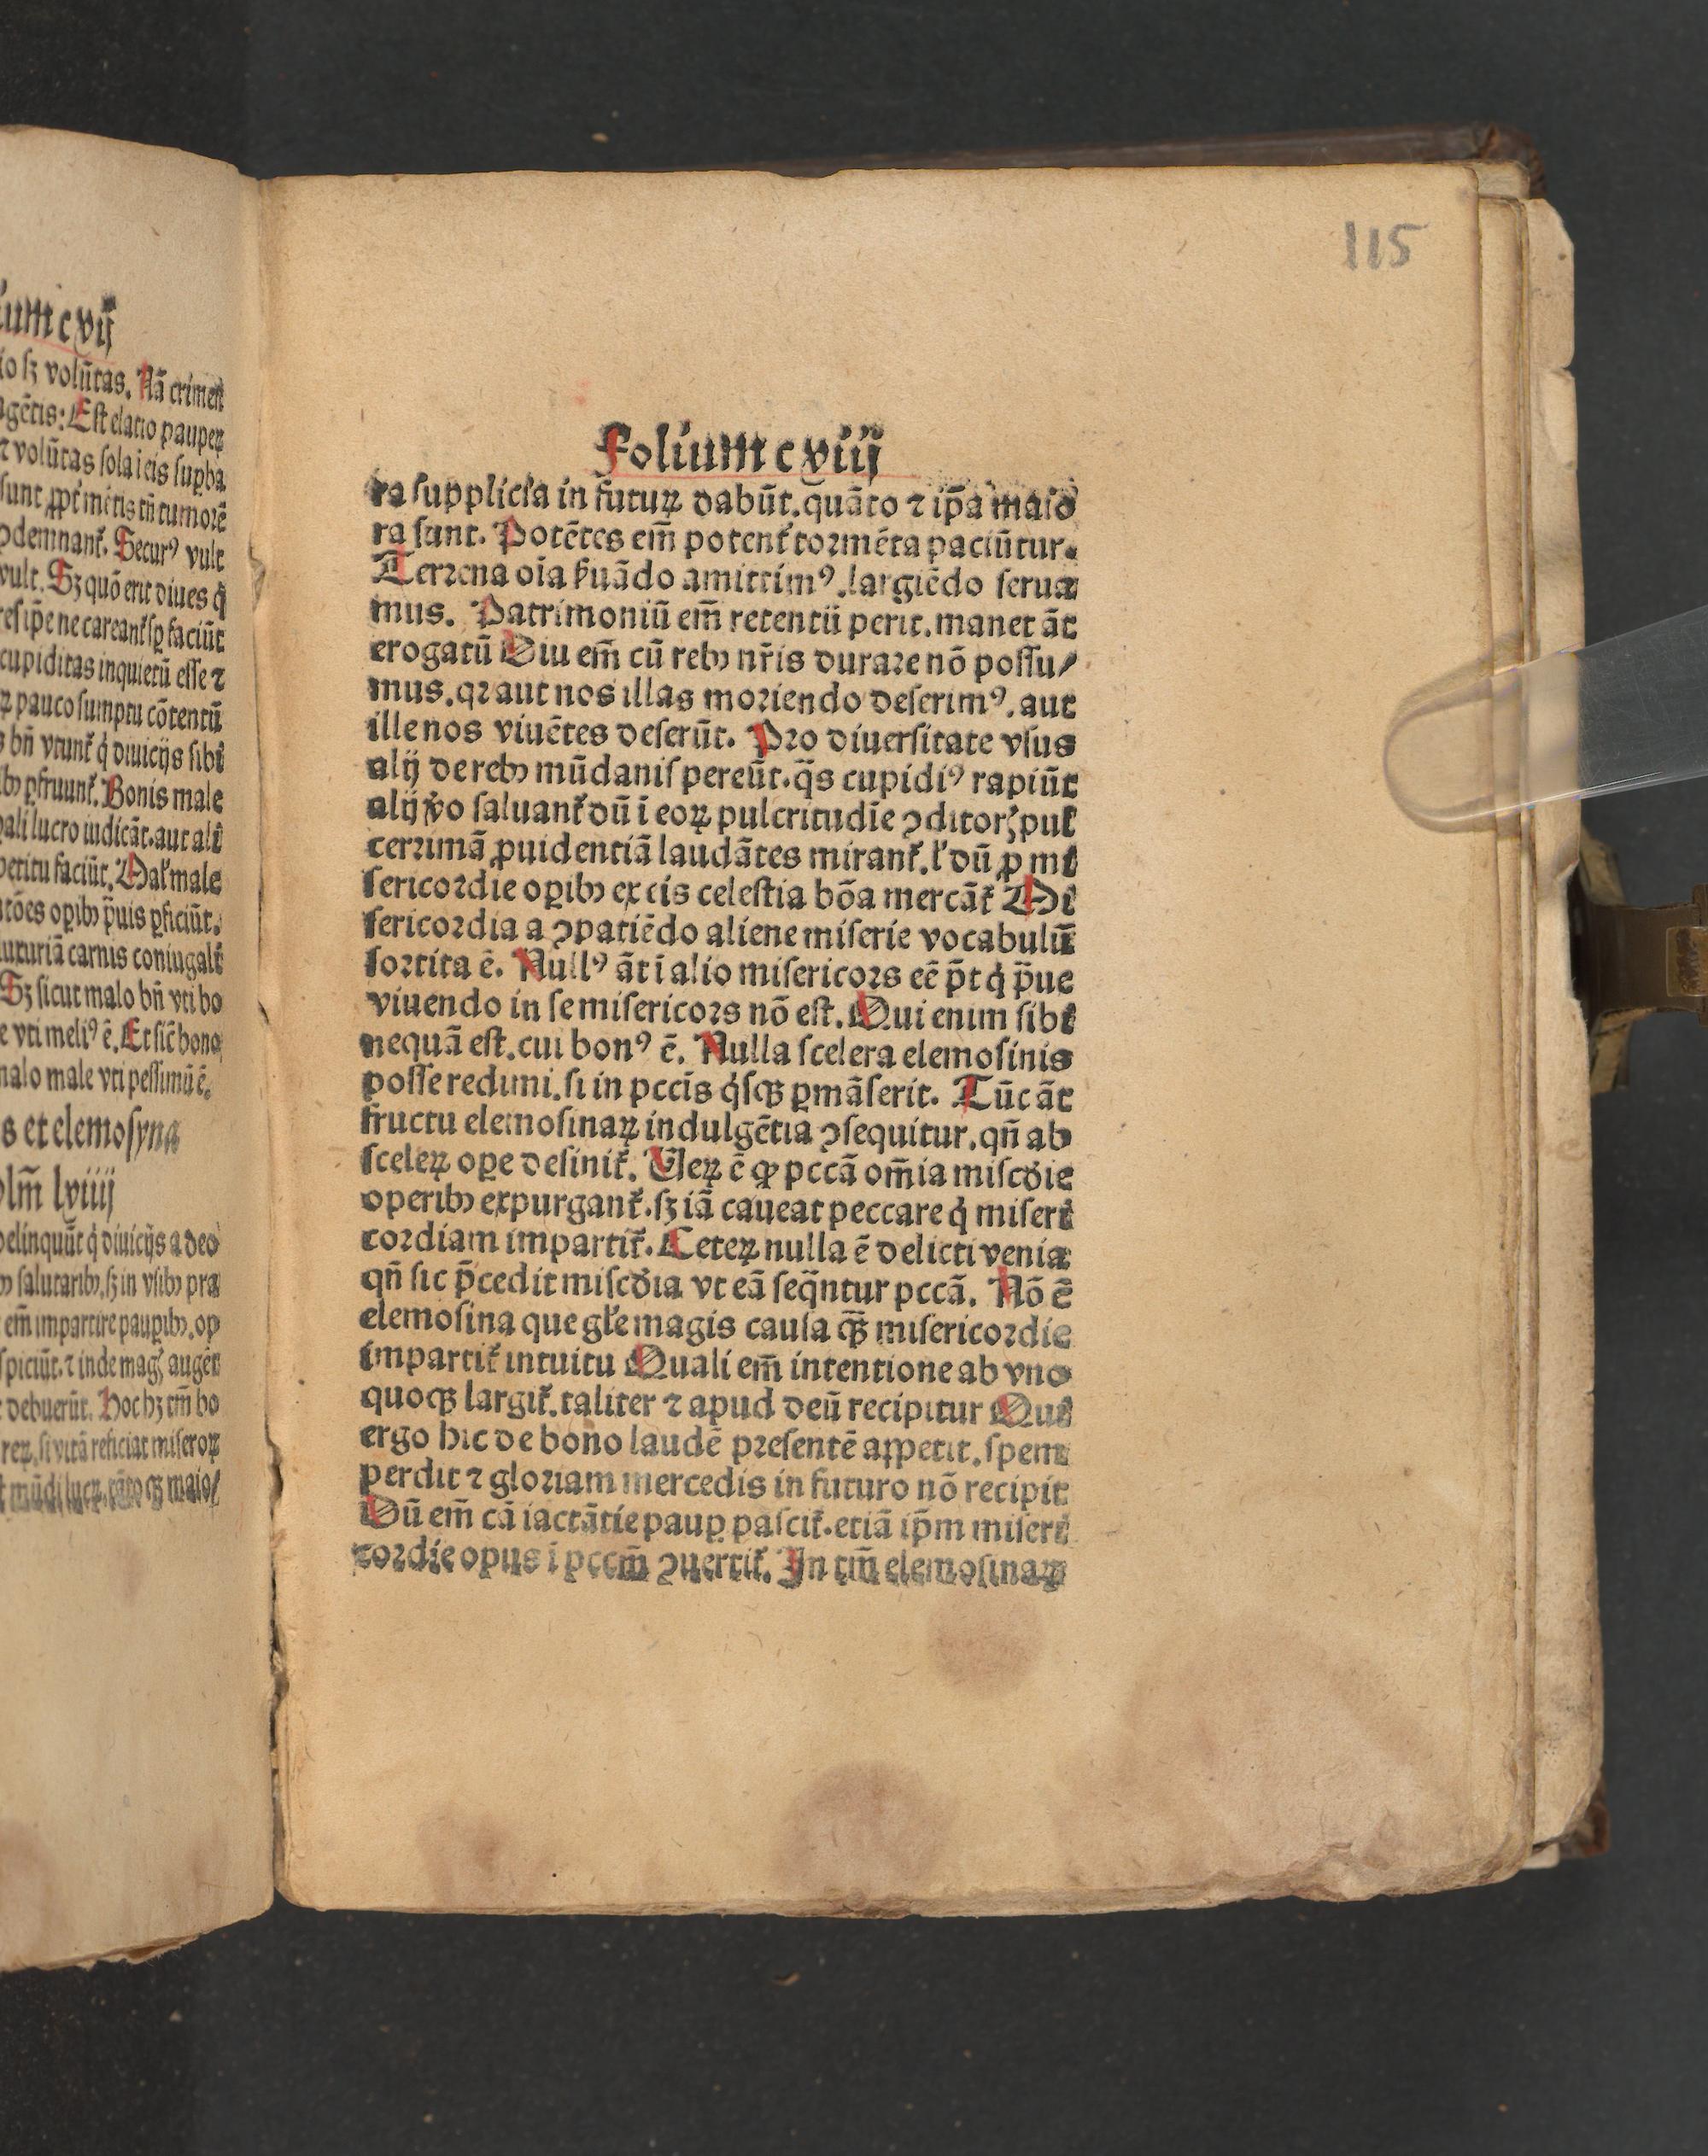 ium c vij
io sꝫ volūtas. Nā crimen
agētis: Est elatio pauperꝝ
⁊ volūtas sola ī eis supba
sunt ꝓpt mētis tn̄ tumorē
ꝯdemnant᷑. Securꝰ vult
vult. Sꝫ quō erit diues q̇
res ip̄e ne careant᷑ sꝑ faciūt
cupiditas inquietū esse ⁊
pauco sumptu cōtentū
bn̄ vtunt᷑ q̇ diuicijs sibi
ꝑfruunt᷑. Bonis male
ali lucro iudicāt. aut ali
petitu faciūt. Mal᷑ male
tōes oꝑibꝫ p̄uis ꝑficiūt.
luxuriā carnis coniugali
Sꝫ sicut malo bn̄ vti bo
e vti meliꝰ ē. Et sic̄ bono
malo male vti pessimū ē.
s et elemosyna
lm̄ lviiij
delinquūt q̇ diuicijs a deo
salutaribꝫ. sꝫ in vsibꝫ pra
em̄ impartire pauꝑibꝫ. op
spiciūt. ⁊ inde mag̛ augēt
debuerūt. Hoc hꝫ tm̄ bo
reꝝ. si vitā reficiat miseroꝝ
mūdi lucꝝ. maio/
115
Folium c viij
ra supplicia in futuꝝ dabūt. quāto ⁊ ip̄a maio
ra sunt. Potētes em̄ potent᷑ tormēta paciūtur.
Terrena oīa ẜuādo amittimꝰ. largiēdo serua
mus. Patrimoniū em̄ retentū perit. manet āt
erogatū Diu em̄ cū rebꝫ nr̄is durare nō possu/
mus. qꝛ aut nos illas moriendo deserimꝰ. aut
ille nos viuētes deserūt. Pro diuersitate vsus
alij de rebꝫ mūdanis pereūt. q̄s cupidiꝰ rapiūt
alij v̊o saluant᷑ dū ī eoꝝ pulcritudīe ꝯditor̛ pul
cerrimā ꝓuidentiā laudātes mirant᷑. l᷑ dū ꝓ mi
sericordie oꝑibꝫ ex eis celestia bōa mercāt᷑ Mi
sericordia a ꝯpatiēdo aliene miserie vocabulū
sortita ē. Nullꝰ āt ī alio misericors eē p̄t q̇ p̄ue
viuendo in se misericors nō est. Qui enim sibi
nequā est. cui bonꝰ ē. Nulla scelera elemosinis
posse redimi. si in pccīs q̇sqꝫ ꝑmāserit. Tūc āt
fructu elemosinaꝝ indulgētia ꝯsequitur. qn̄ ab
sceleꝝ oꝑe desinit᷑. Veꝝ ē ꝙ pccā om̄ia misc̊die
operibꝫ expurgant᷑. sꝫ iā caueat peccare q̇ miseri
cordiam impartit᷑. Ceteꝝ nulla ē delicti venia
qn̄ sic p̄cedit misc̊dia vt eā seq̄ntur pccā. Nō ē
elemosina que gl᷑e magis causa qꝫ̄ misericordie
impartit᷑ intuitu Quali em̄ intentione ab vno
quoqꝫ largit᷑. taliter ⁊ apud deū recipitur Qui
ergo hic de bono laudē presentē appetit. spem
perdit ⁊ gloriam mercedis in futuro nō recipit
Dū em̄ cā iactātie pauꝑ pascit᷑. etiā ip̄m miseri
cordie opus ī pccm̄ ꝯuertit᷑. In tm̄ elemosinaꝝ